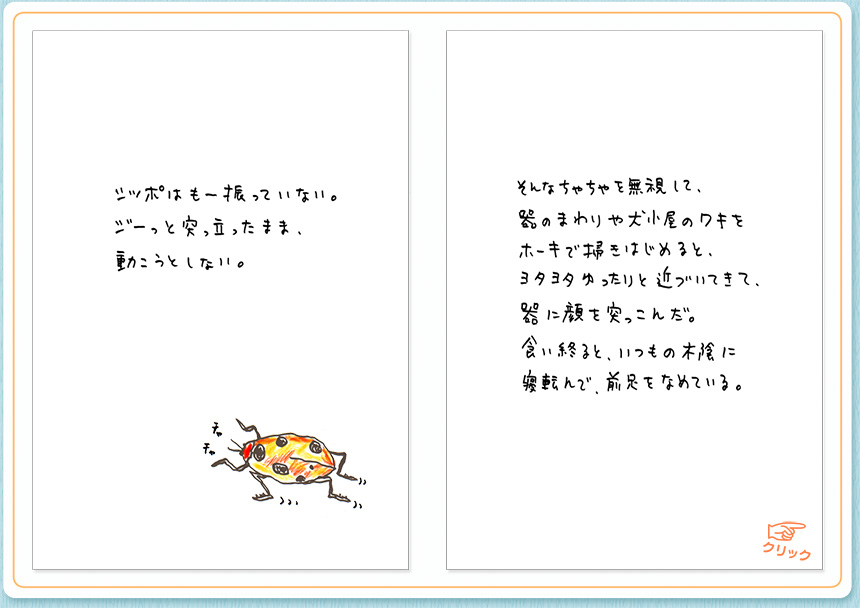 シッポはも一振っていない。
ジーっと突っ立ったまま、
動こうとしない。
チャ
チャ
そんなちゃちゃを無視して、
器のまわりや犬小屋のワキを
ホーキで掃きはじめると、
ヨタヨタゆったりと近づいてきて、
器に顔を突っこんだ。
食い終ると、いつもの木陰に
寝転んで、前足をなめている。
クリック